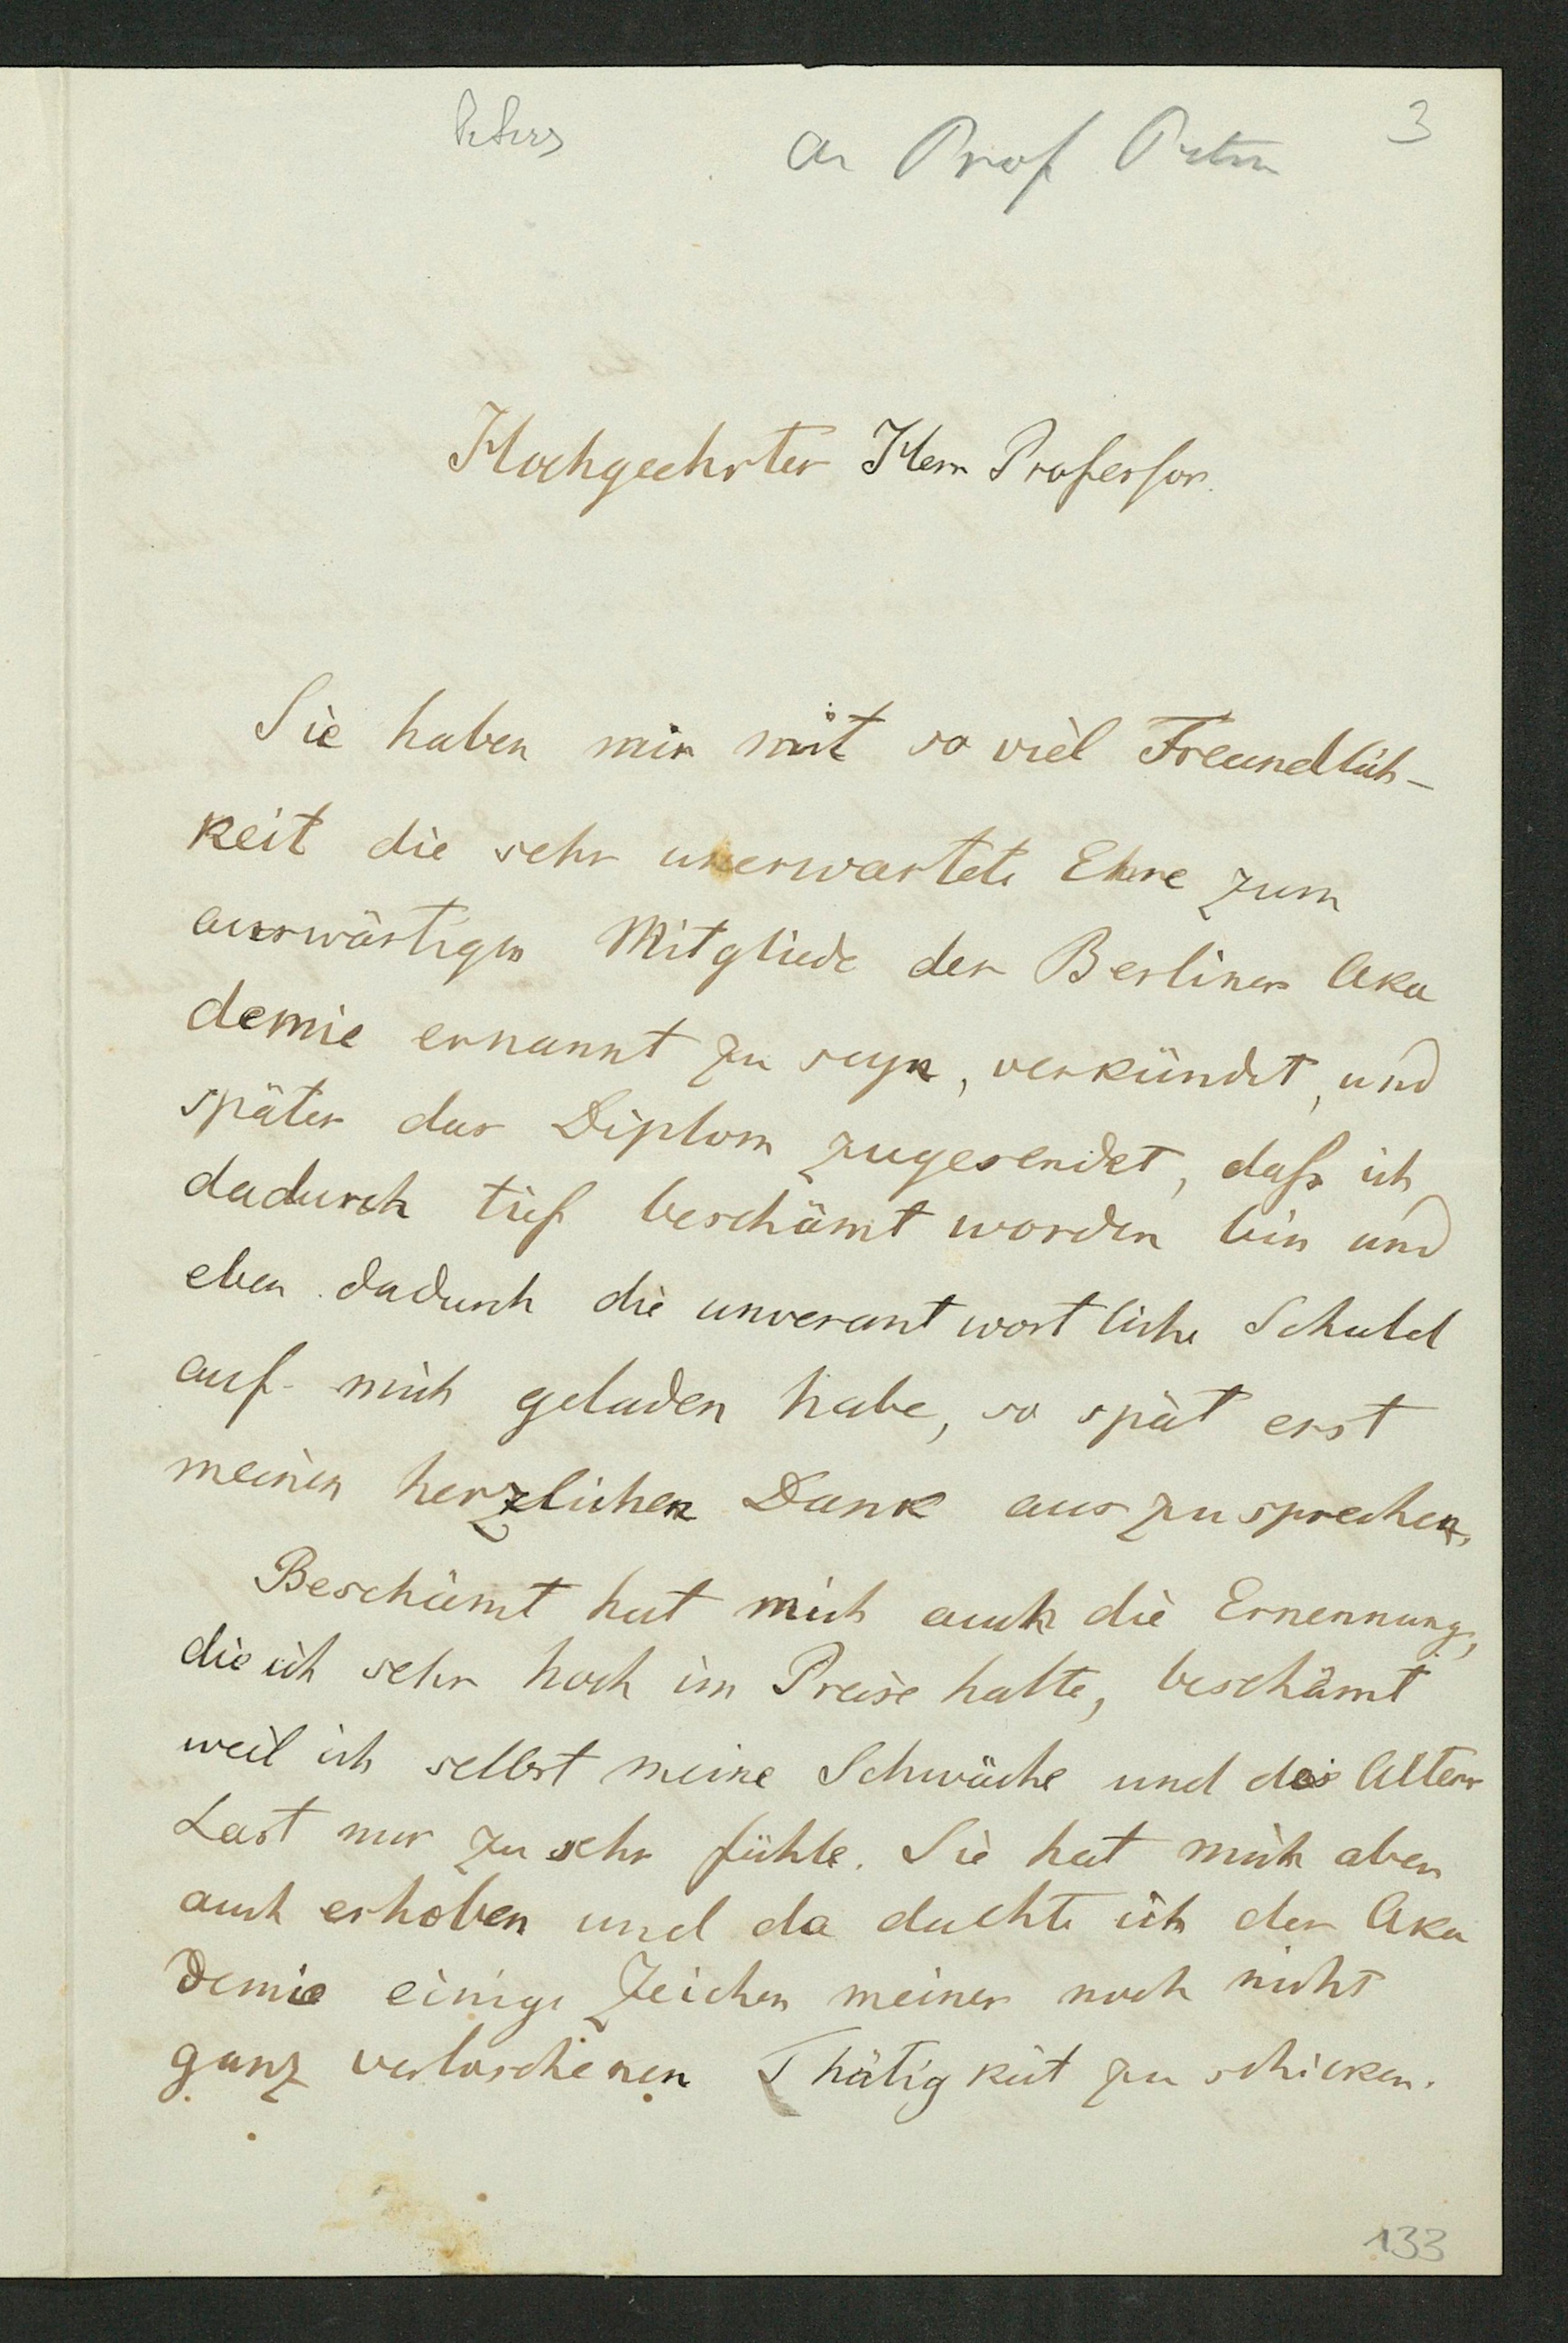 Peters
an Prof Peters
3
Hochgeehrter Herr Professor.
Sie haben mir mit so viel Freundlich-
keit die sehr unerwartete Ehre zum
auswärtigen Mitgliede der Berliner Aka
demie ernannt zu seyn, verkündet, und
später das Diplom zugesendet, dafs ich
dadurch tief beschämt worden bin und
eben dadurch die unverantwortliche Schuld
auf mich geladen habe, so spät erst
meinen herzlichen Dank auszusprechen.
Beschämt hat mich auch die Ernennung,
die ich sehr hoch im Preise halte, beschämt
weil ich selbst meine Schwäche und des Alters
Last nur zu sehr fühle. Sie hat mich aber
auch erhoben und da dachte ich der Aka
demie einige Zeichen meiner noch nicht
ganz verloschenen Thätigkeit zu schicken.
133